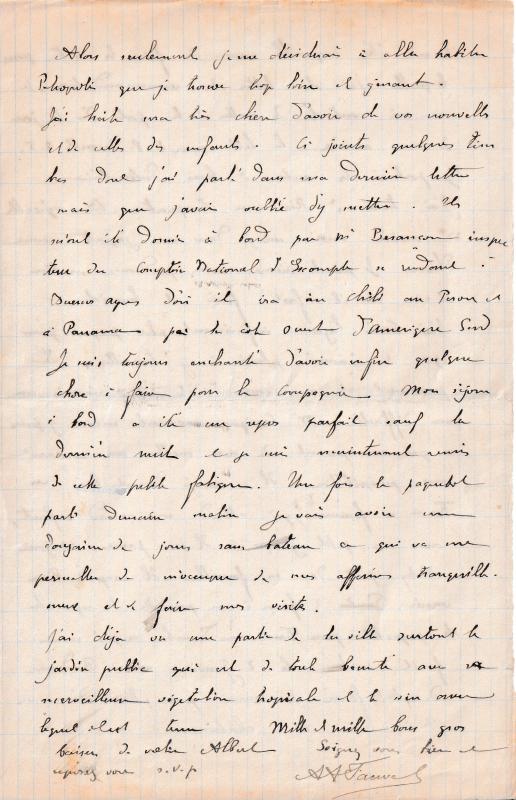 Alors seulement je me déciderai à aller habiter
Petropolis que je trouve trop loin et gênant.
J'ai hâte ma très chère d'avoir de vos nouvelles
et de celles des enfants. Ci joints quelques tim
bres dont j'ai parlé dans ma dernière lettre
mais que j'avais oublié d'y mettre. Ils
m'ont été donnés à bord par Mr Besançon inspec
teur du Comptoir National d'Escompte se rendant à
Buenos ayres d'où il ira au Chili au Perou et
à Panama par la côte ouest d'Amérique Sud
Je suis toujours enchanté d'avoir enfin quelque
chose à faire pour la Compagnie. Mon séjour
à bord a été un repos parfait sauf la
dernière nuit et je suis maintenant remis
de cette petite fatigue. Une fois le paquebot
parti demain matin je vais avoir une
douzaine de jours sans bateau ce qui va me
permettre de m'occuper de nos affaires tranquille-
ment et de faire mes visites.
J'ai déjà vu une partie de la ville surtout le
jardin public qui est de toute beauté avec sa
merveilleuse végétation tropicale et le soin avec
lequel il est tenu Mille et mille bons gros
baisers de votre Albert Soignez vous bien et
reposez vous s.v.p A A Fauvel